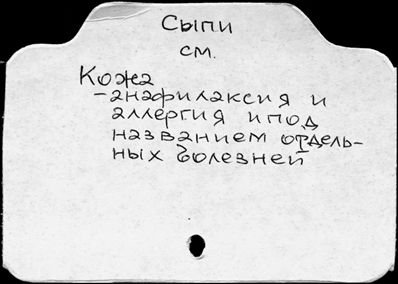 Сыпи
см.
Кожа
-анафилаксия и
аллергия и под
названием отдель-
ных болезней